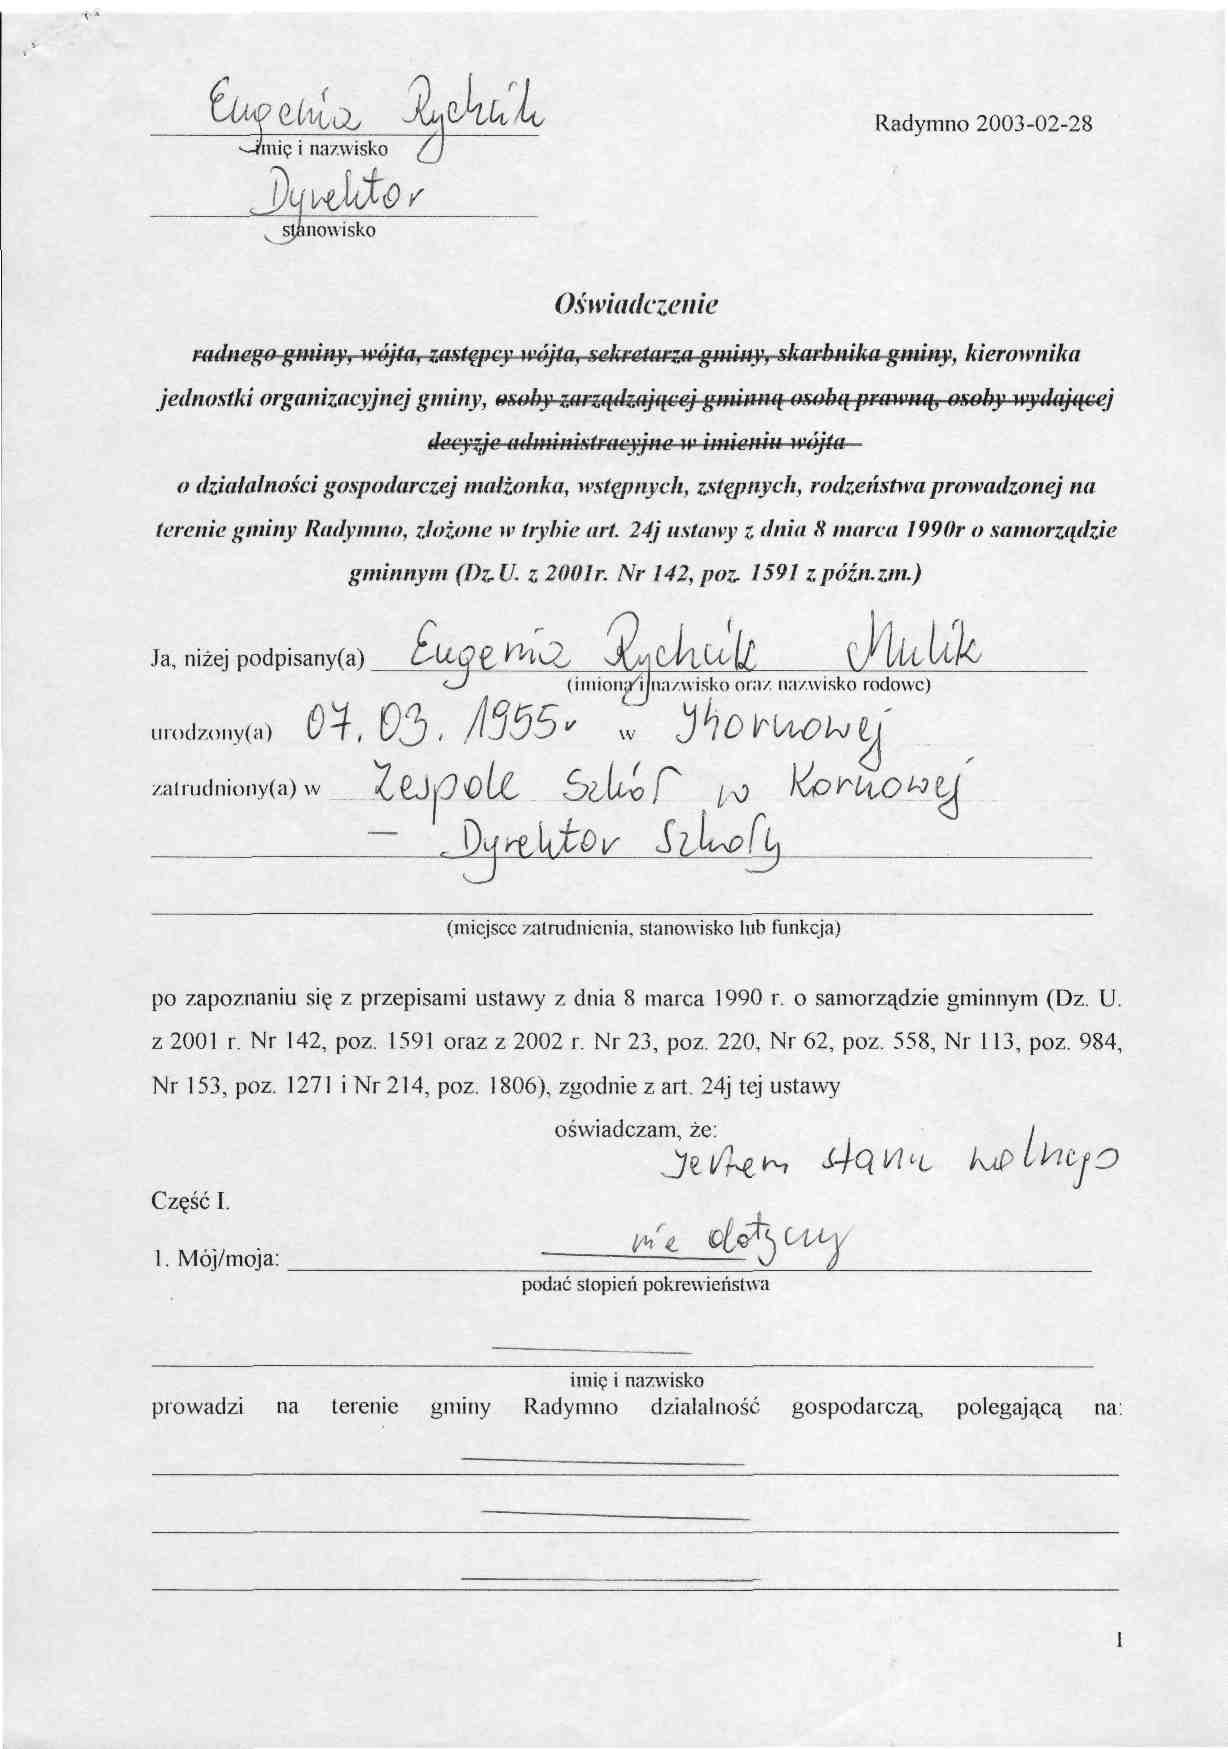 Eugenia Rychcik
Radymno 2003-02-28
imię i nazwisko
Dyrektor
stanowisko
Oświadczenie
radnego gminy, wójta, zastępcy wójta, sekretarza gminy, skarbnika gminy, kierownika
jednostki organizacyjnej gminy, osoby zarządzającej gminną osobą prawną, osoby wydającej
decyzje administracyjne w imieniu wójta
o działalności gospodarczej małżonka, wstępnych, zstępnych, rodzeństwa prowadzonej na
terenie gminy Radymno, złożone w trybie art. 24j ustawy z dnia 8 marca 1990r o samorządzie
gminnym (Dz.U. z 2001r. Nr 142, poz. 1591 z późn.zm.)
Ja, niżej podpisany(a) Eugenia Rychcik Mulik
(imiona i nazwisko oraz nazwisko rodowe)
urodzony(a) 07.03.1955r w
zatrudniony(a) w Zespole Szkół w Korniowej
– Dyrektor Szkoły
(miejsce zatrudnienia, stanowisko lub funkcja)
po zapoznaniu się z przepisami ustawy z dnia 8 marca 1990 r. o samorządzie gminnym (Dz. U.
z 2001 r. Nr 142, poz. 1591 oraz z 2002 r. Nr 23, poz. 220, Nr 62, poz. 558, Nr 113, poz. 984,
Nr 153, poz. 1271 i Nr 214, poz. 1806), zgodnie z art. 24j tej ustawy
oświadczam, że:
Jestem stanu wolnego
Część I.
1. Mój/moja: nie dotyczy
podać stopień pokrewieństwa
imię i nazwisko
prowadzi na terenie gminy Radymno działalność gospodarczą, polegającą na:
1